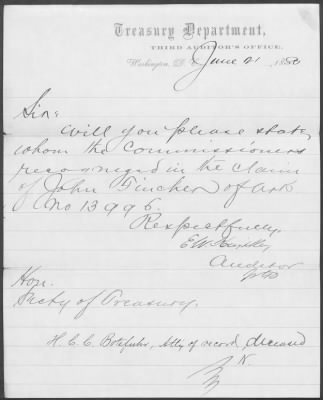 Treasury Department,
THIRD AUDITOR'S OFFICE,
Washington, D. C. June 21, 1880
Sir:
Will you please state
whom the Commissioners
recognized in the claim
of John Fincher of Ark
No 13996.
Respectfully,
E W
Auditor
Hon.
Secty of Treasury.
H. C. C. Botefuhr, Atty of record, deceased
K.